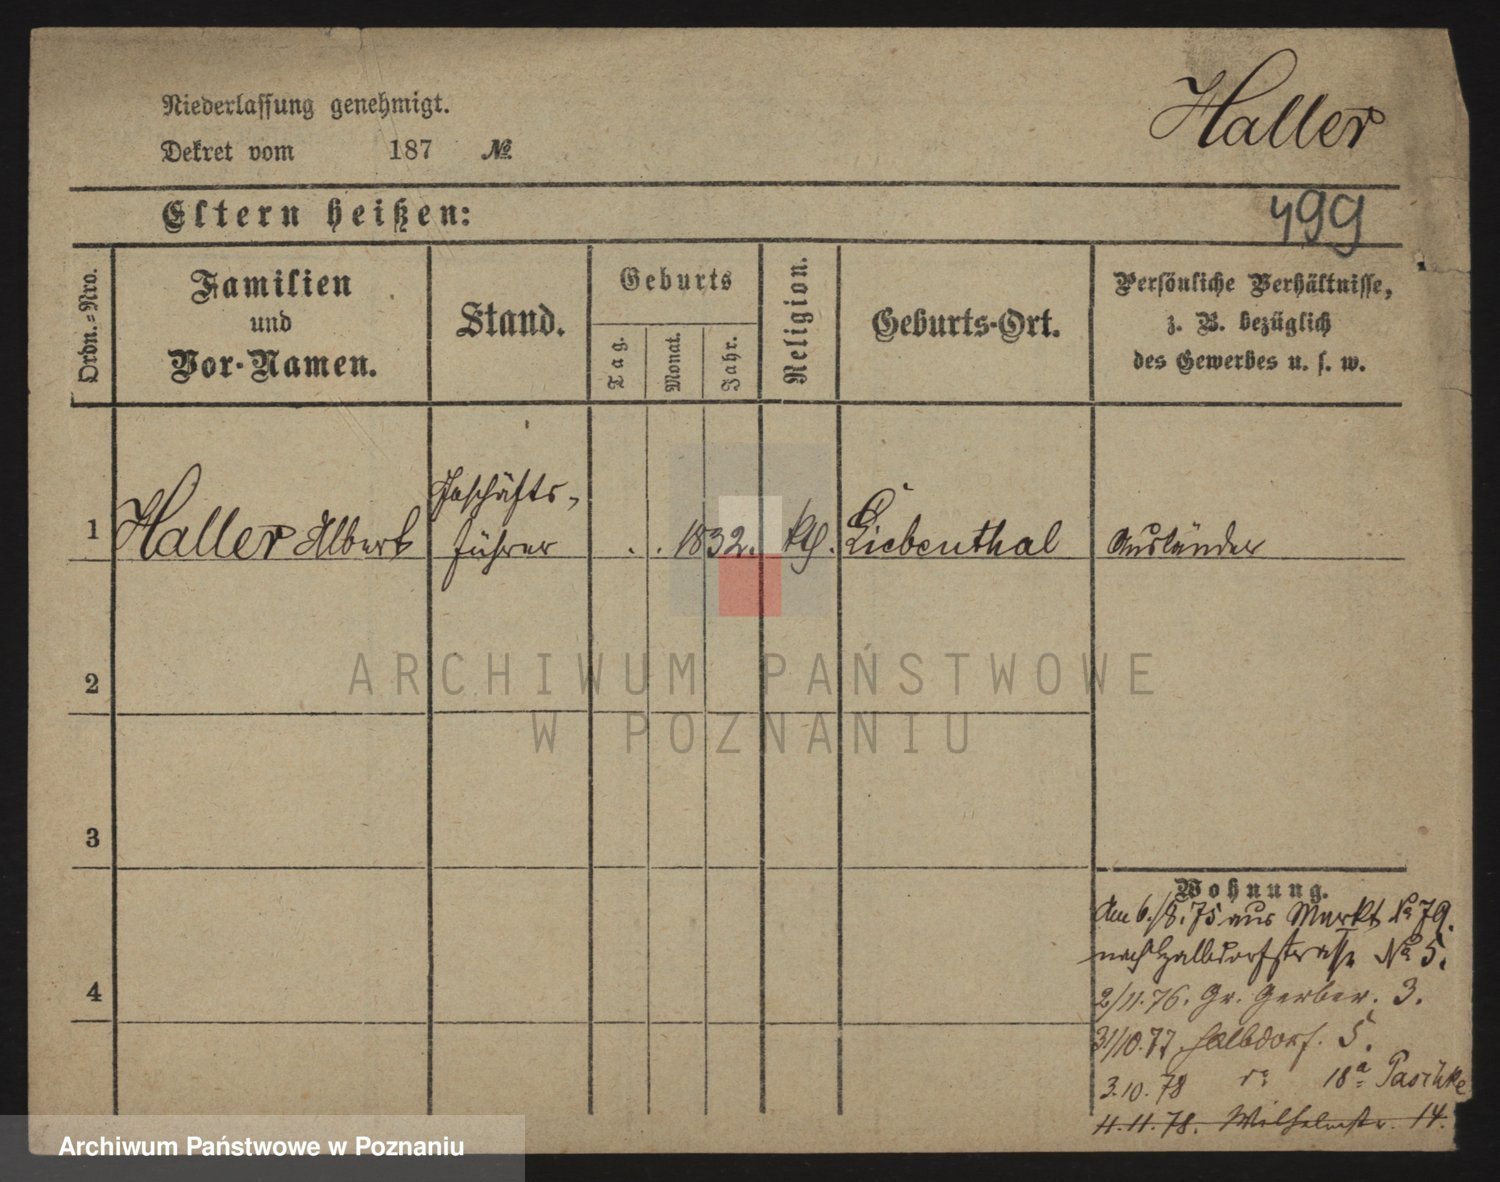 Niederlassung genehmigt.
Dekret vom 187 №
Haller
Eltern heißen:
499
Ordn.-Nro.
Familien
und
Vor-Namen.
Stand.
Geburts
Tag.
Monat.
Jahr.
Religion.
Geburts-Ort.
Persönliche Verhältnisse,
z. B. bezüglich
des Gewerbes u. s. w.
1 Haller Albert
Geschäfts-
führer
. . 1832. kth. Liebenthal Ausländer
2
3
4
ARCHIWUM PAŃSTWOWE
W POZNANIU
Wohnung.
Am 6./8.75 aus Markt № 79.
nach Halbdorfstrasse № 5.
2/11.76. Gr. Gerber. 3.
31/10.77 Halbdorf. 5.
3.10.78 18a Paschke
11.11.78. Wilhelmstr. 14.
Archiwum Państwowe w Poznaniu